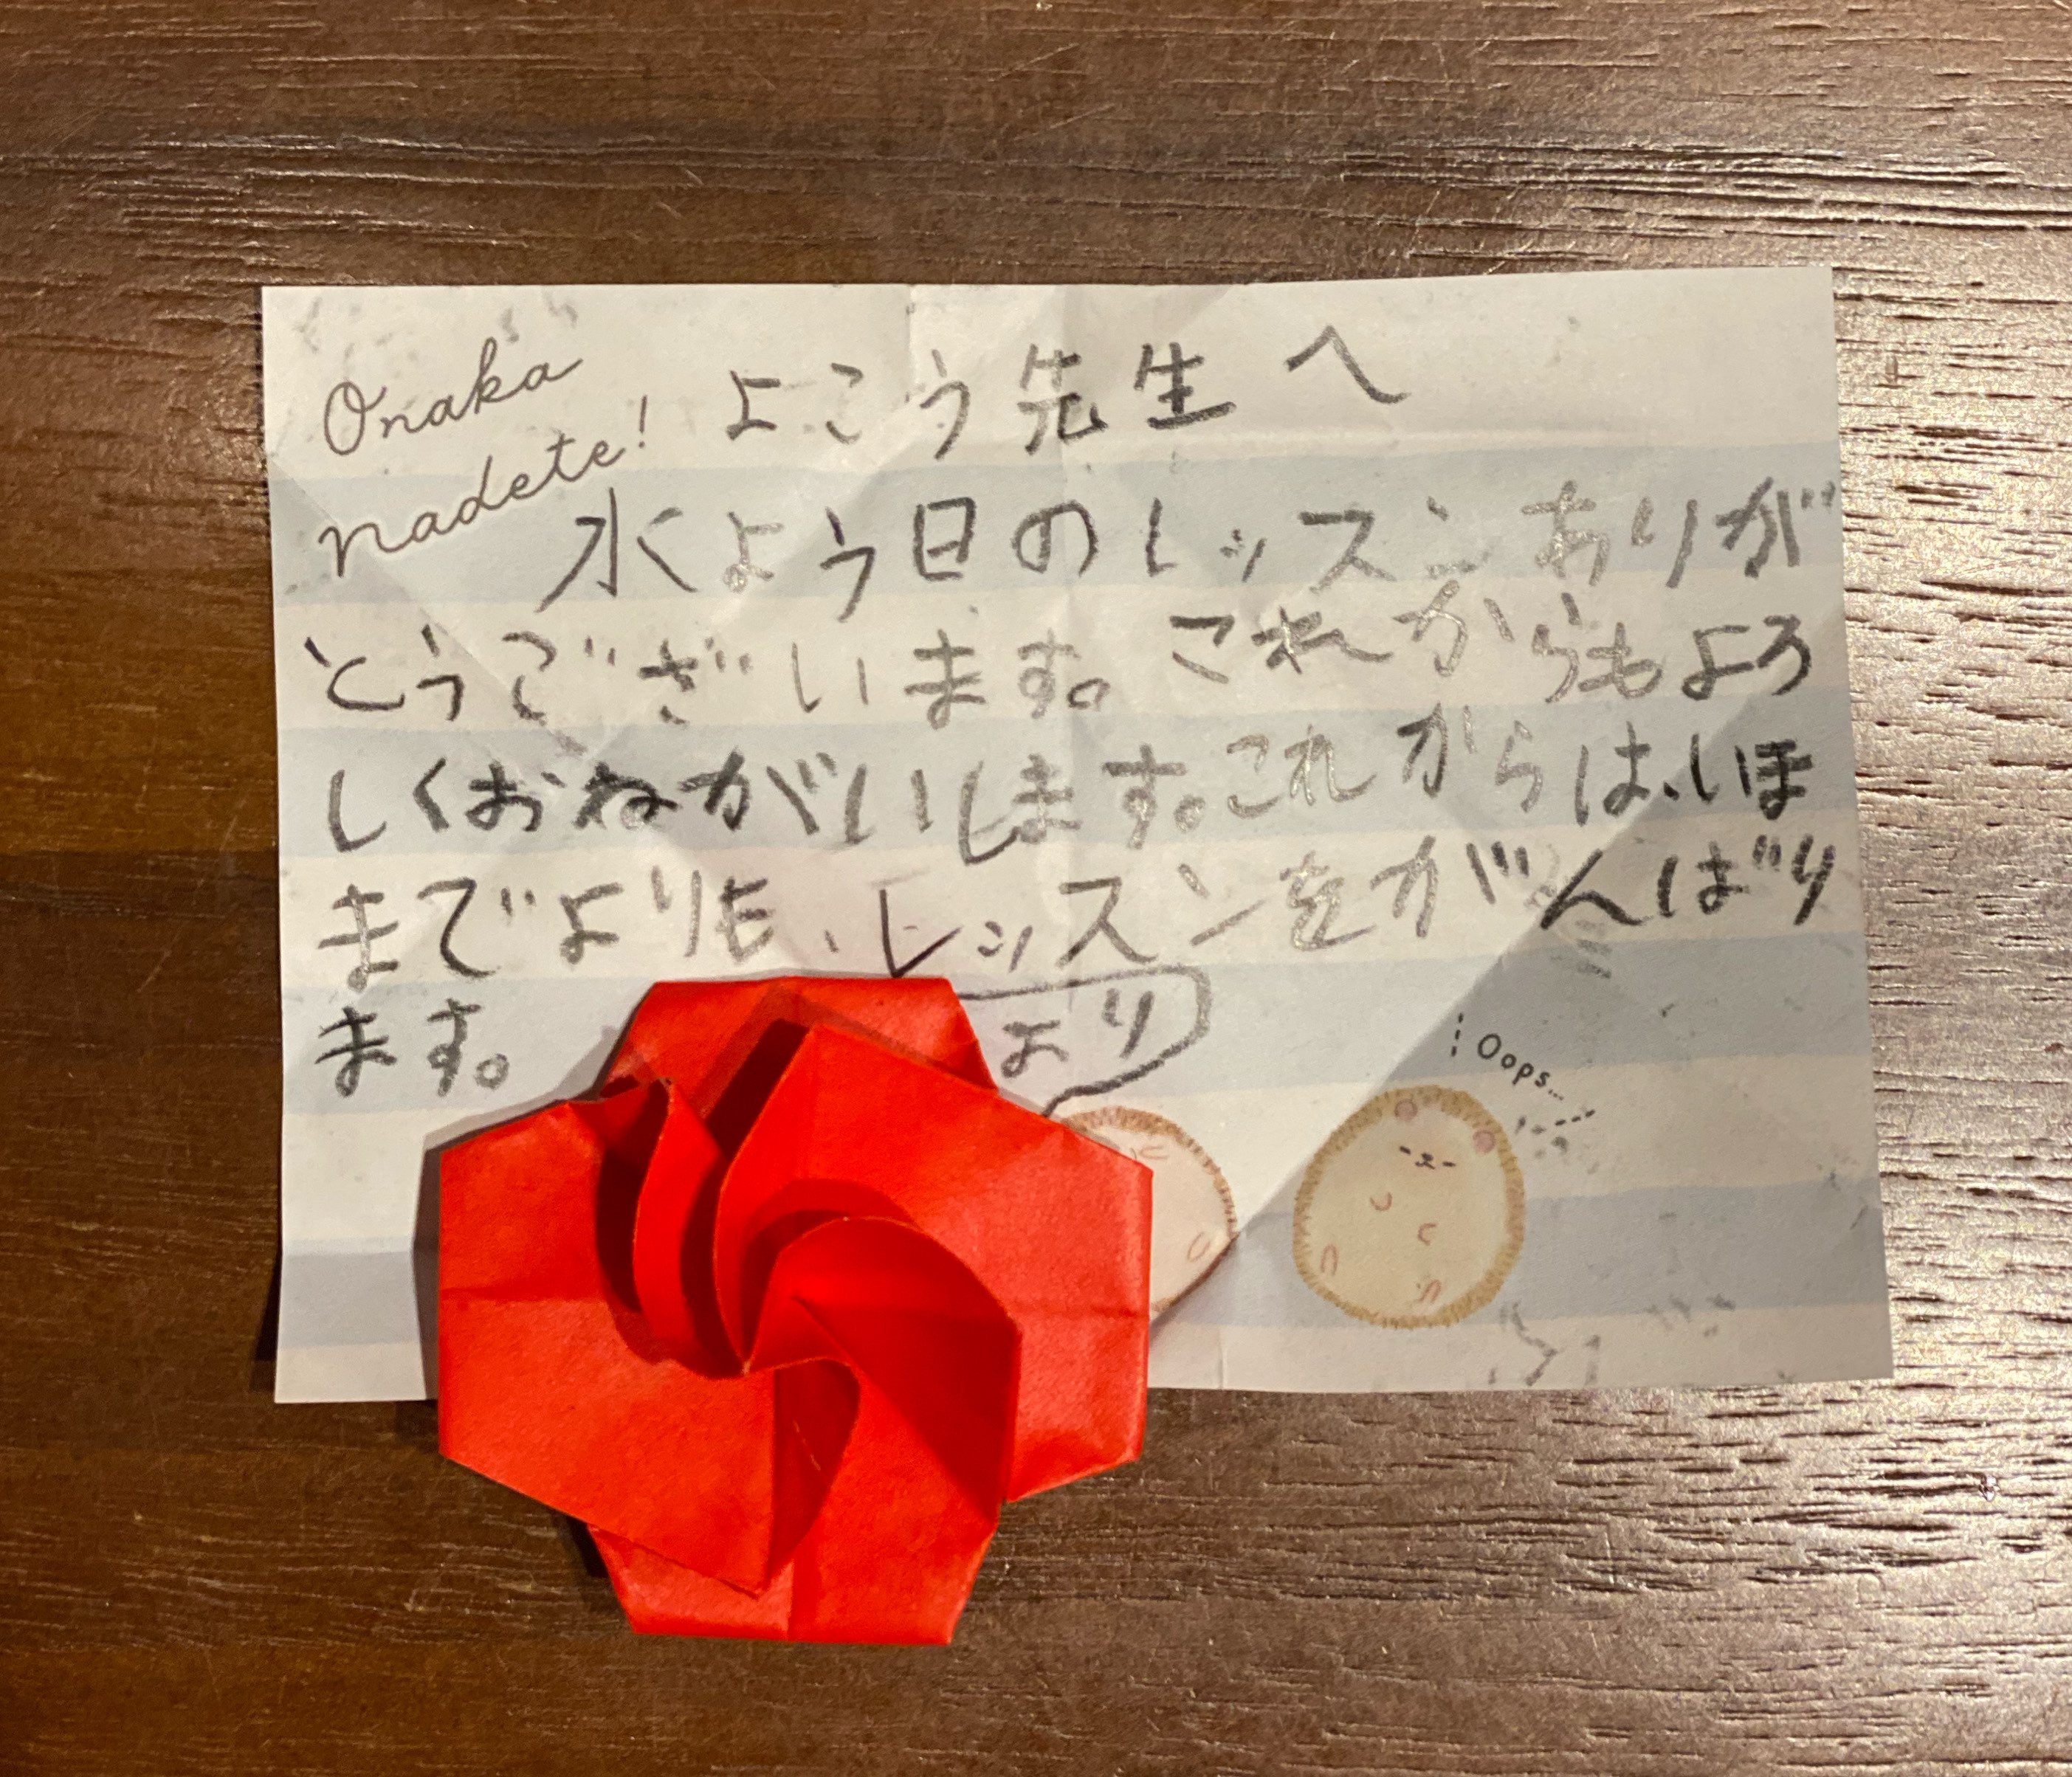 Onaka
nadete!
よこう先生へ
水よう日のレッスンありが
とうございます。これからもよろ
しくおねがいします。これからは、いほ
までよりも、レッスンをがんばり
ます。
より
Oops...